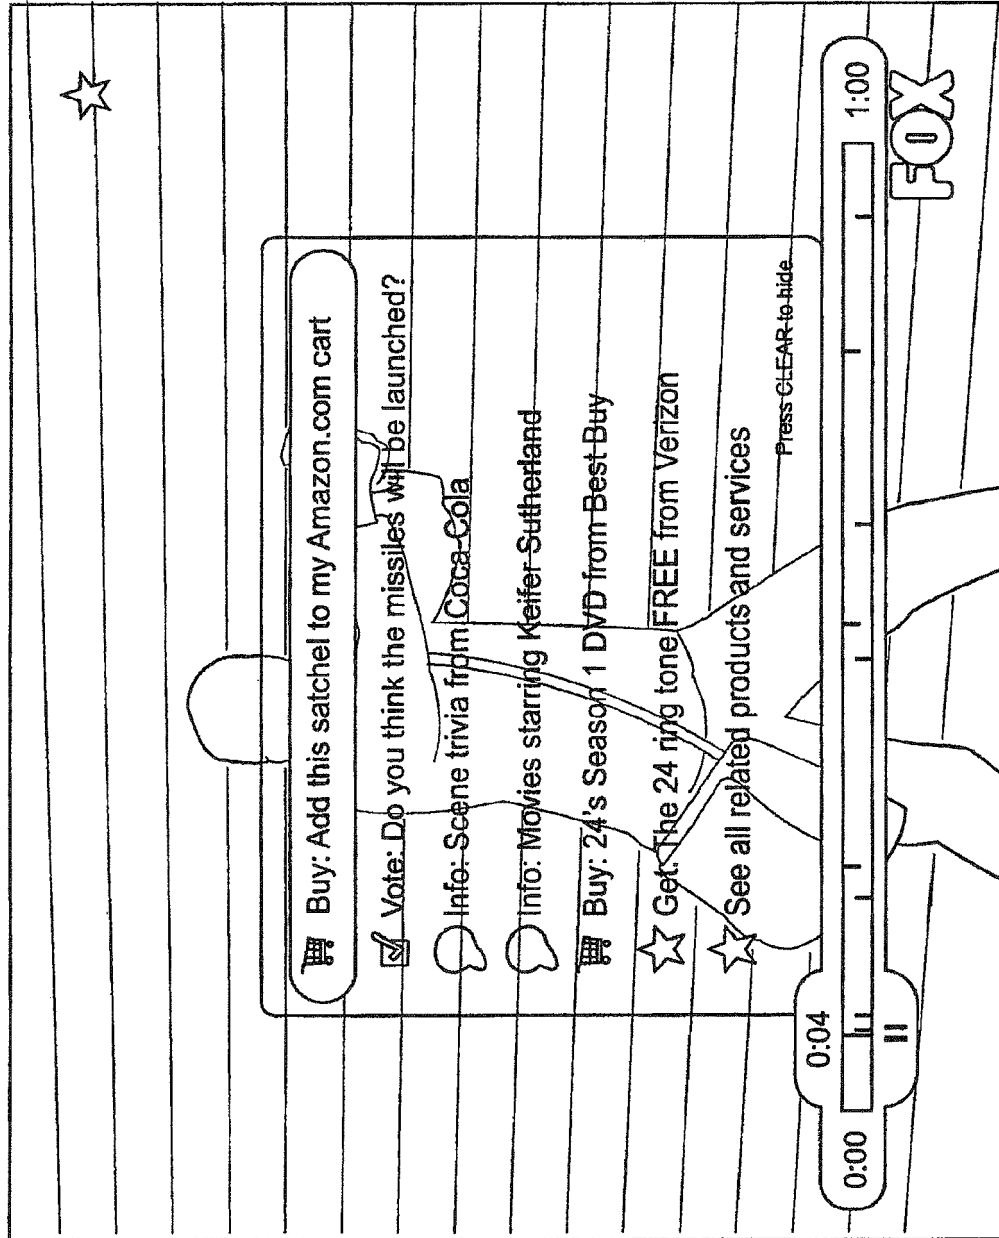 Buy: Add this satchel to my Amazon.com cart
Vote: Do you think the missiles will be launched?
Info: Scene trivia from Coca-Cola
Info: Movies starring Keifer Sutherland
Buy: 24's Season 1 DVD from Best Buy
Get: The 24 ring tone FREE from Verizon
See all related products and services
Press CLEAR to hide
0:04
0:00
1:00
FOX